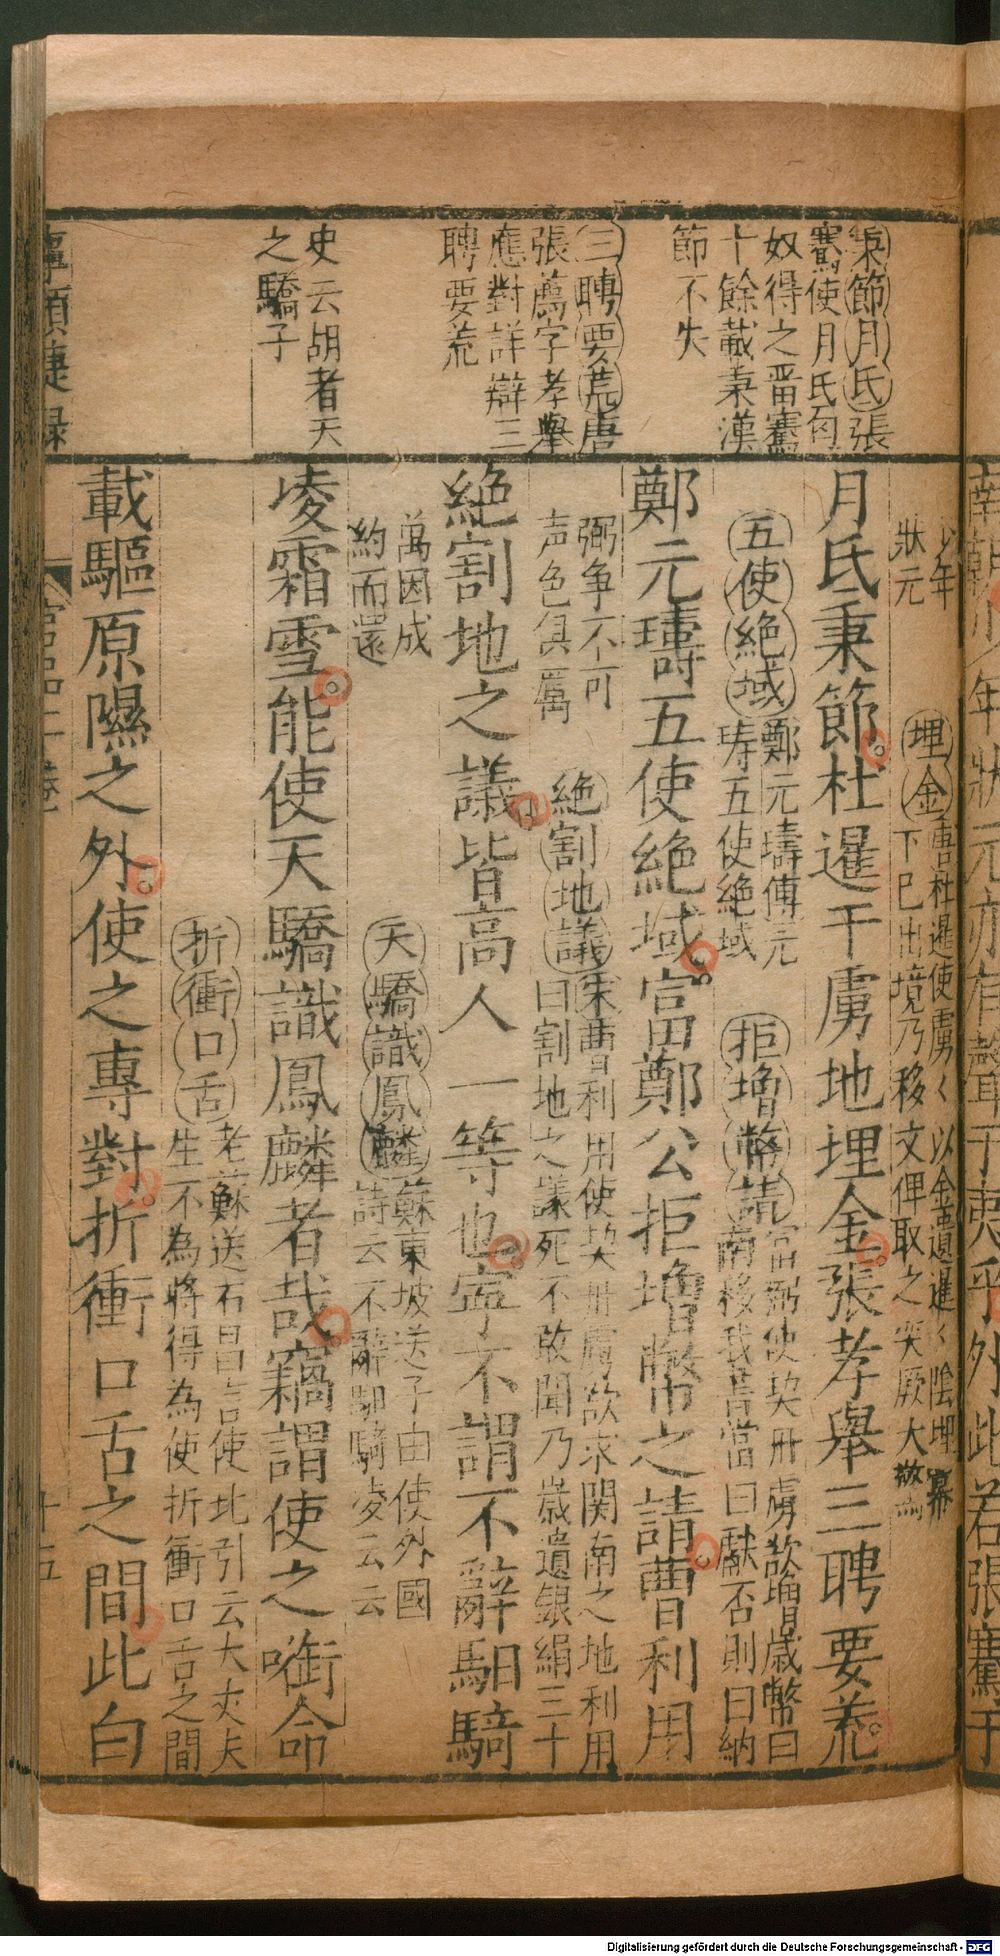 秉節月氏張
騫使月氏匈
奴得之畱騫
十餘載秉漢
節不失
三聘要荒唐
張薦字孝舉
應對詳辯三
聘要荒
史云胡者天
之驕子
少年
狀元
埋金唐杜暹使虜〻以金遺暹〻陰埋幕
下已出境乃移文俾取之突厥大驚
月氏秉節杜暹干虜地埋金張孝舉三聘要荒
五使絶域鄭元璹傳元
璹五使絶域
拒增幣請富弼使契丹虜欲增歲幣曰
南移我書當曰獻否則曰納
鄭元璹五使絶域富鄭公拒增幣之請曹利用
弼争不可
声色俱厲
絶割地議宋曹利用使契丹虜欲求関南之地利用
曰割地之議死不敢聞乃歲遺銀絹三十
絶割地之議皆高人一等也寕不謂不辭馹騎
萬因成
約而還
天驕識鳳麟蘇東坡送子由使外國
詩云不辭馹騎凌云云
凌霜雪能使天驕識鳳麟者哉竊謂使之啣命
折衝口舌老蘇送石昌言使北引云大丈夫
生不為將得為使折衝口舌之間
載驅原隰之外使之專對折衝口舌之間此自
事類捷録
十五
Digitalisierung gefördert durch die Deutsche Forschungsgemeinschaft - DFG